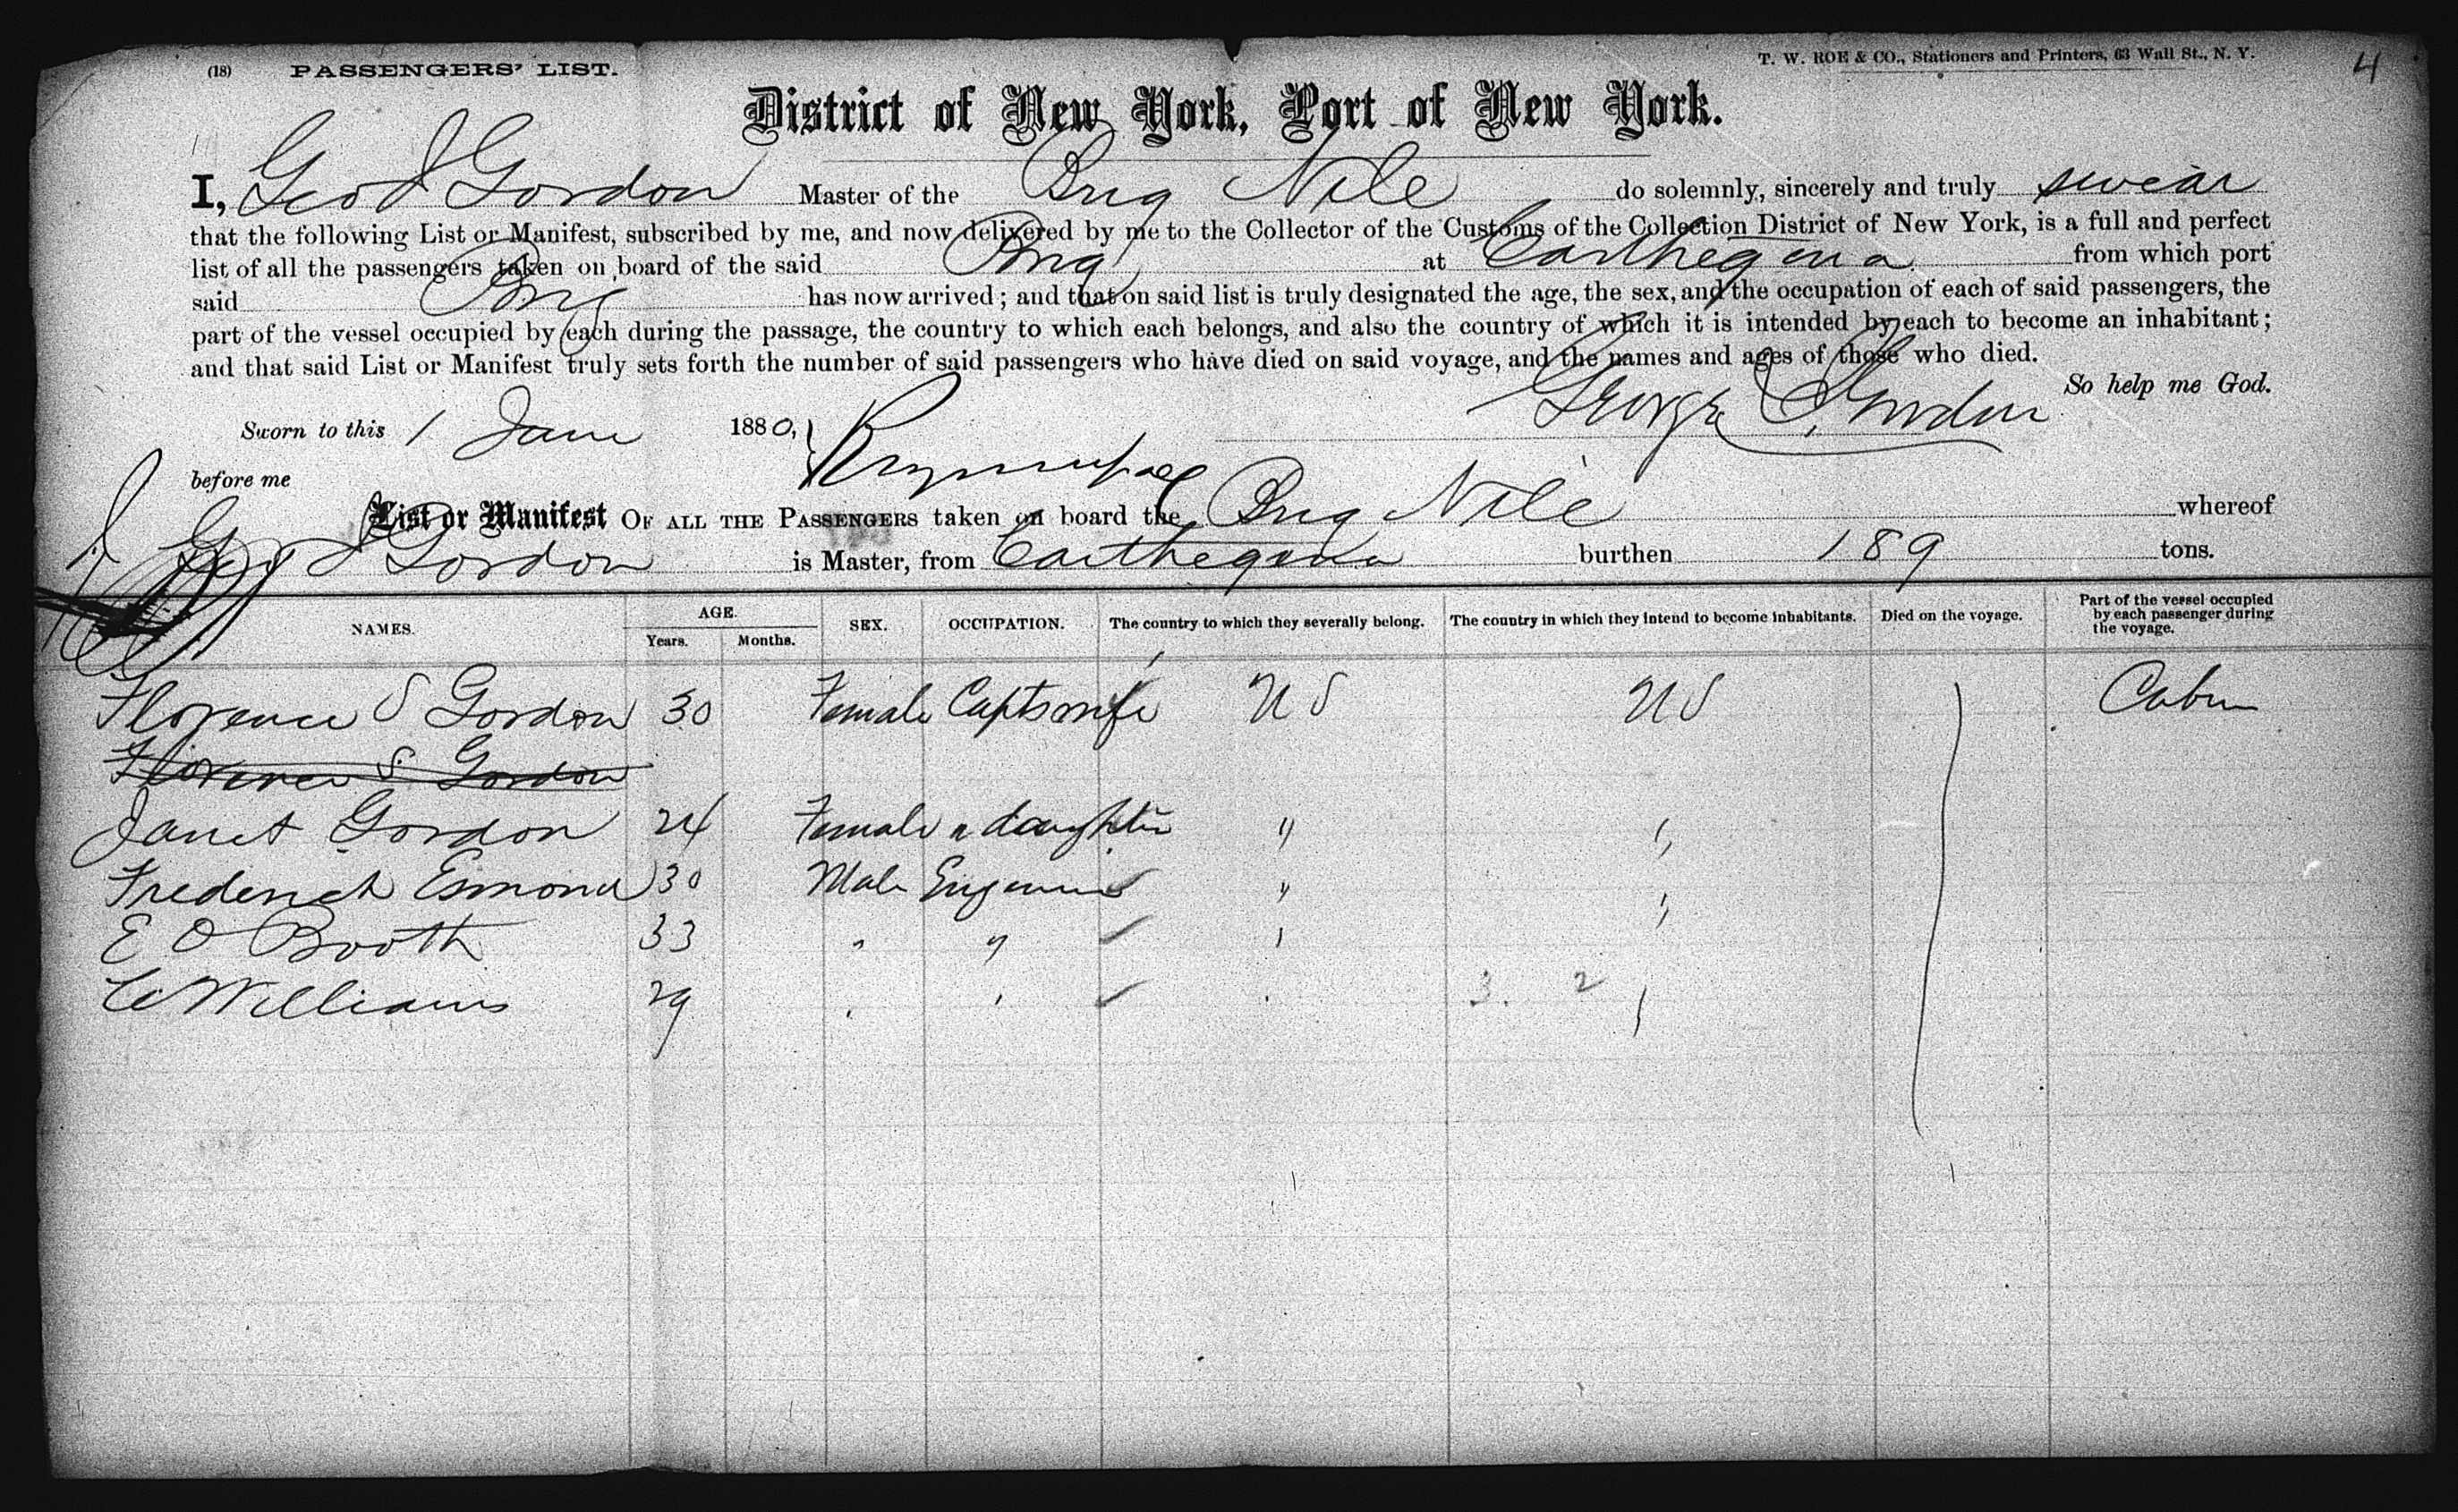 (18) PASSENGERS' LIST.
T. W. ROE & CO., Stationers and Printers, 63 Wall St., N. Y.
4
District of New York, Port of New York.
I, Geo J Gordon Master of the Brig Nile do solemnly, sincerely and truly swear
that the following List or Manifest, subscribed by me, and now delivered by me to the Collector of the Customs of the Collection District of New York, is a full and perfect
list of all the passengers taken on board of the said Brig at Carthegena from which port
said Brig has now arrived; and that on said list is truly designated the age, the sex, and the occupation of each of said passengers, the
part of the vessel occupied by each during the passage, the country to which each belongs, and also the country of which it is intended by each to become an inhabitant;
and that said List or Manifest truly sets forth the number of said passengers who have died on said voyage, and the names and ages of those who died.
So help me God.
Sworn to this 1 Jany 1880, George Gordon
before me
List or Manifest OF ALL THE PASSENGERS taken on board the Brig Nile whereof
Geo J Gordon is Master, from Carthegena burthen 189 tons.
NAMES. AGE. Years. Months. SEX. OCCUPATION. The country to which they severally belong. The country in which they intend to become inhabitants. Died on the voyage. Part of the vessel occupied by each passenger during the voyage.
Florence S Gordon 30 Female Capts wife U S U S Cabin
Florence S. Gordon
Janet Gordon 24 Female " daughter " "
Frederick Esmond 30 Male Engineer " "
E O Booth 33 " " "
C Williams 29 " " "
3. 2